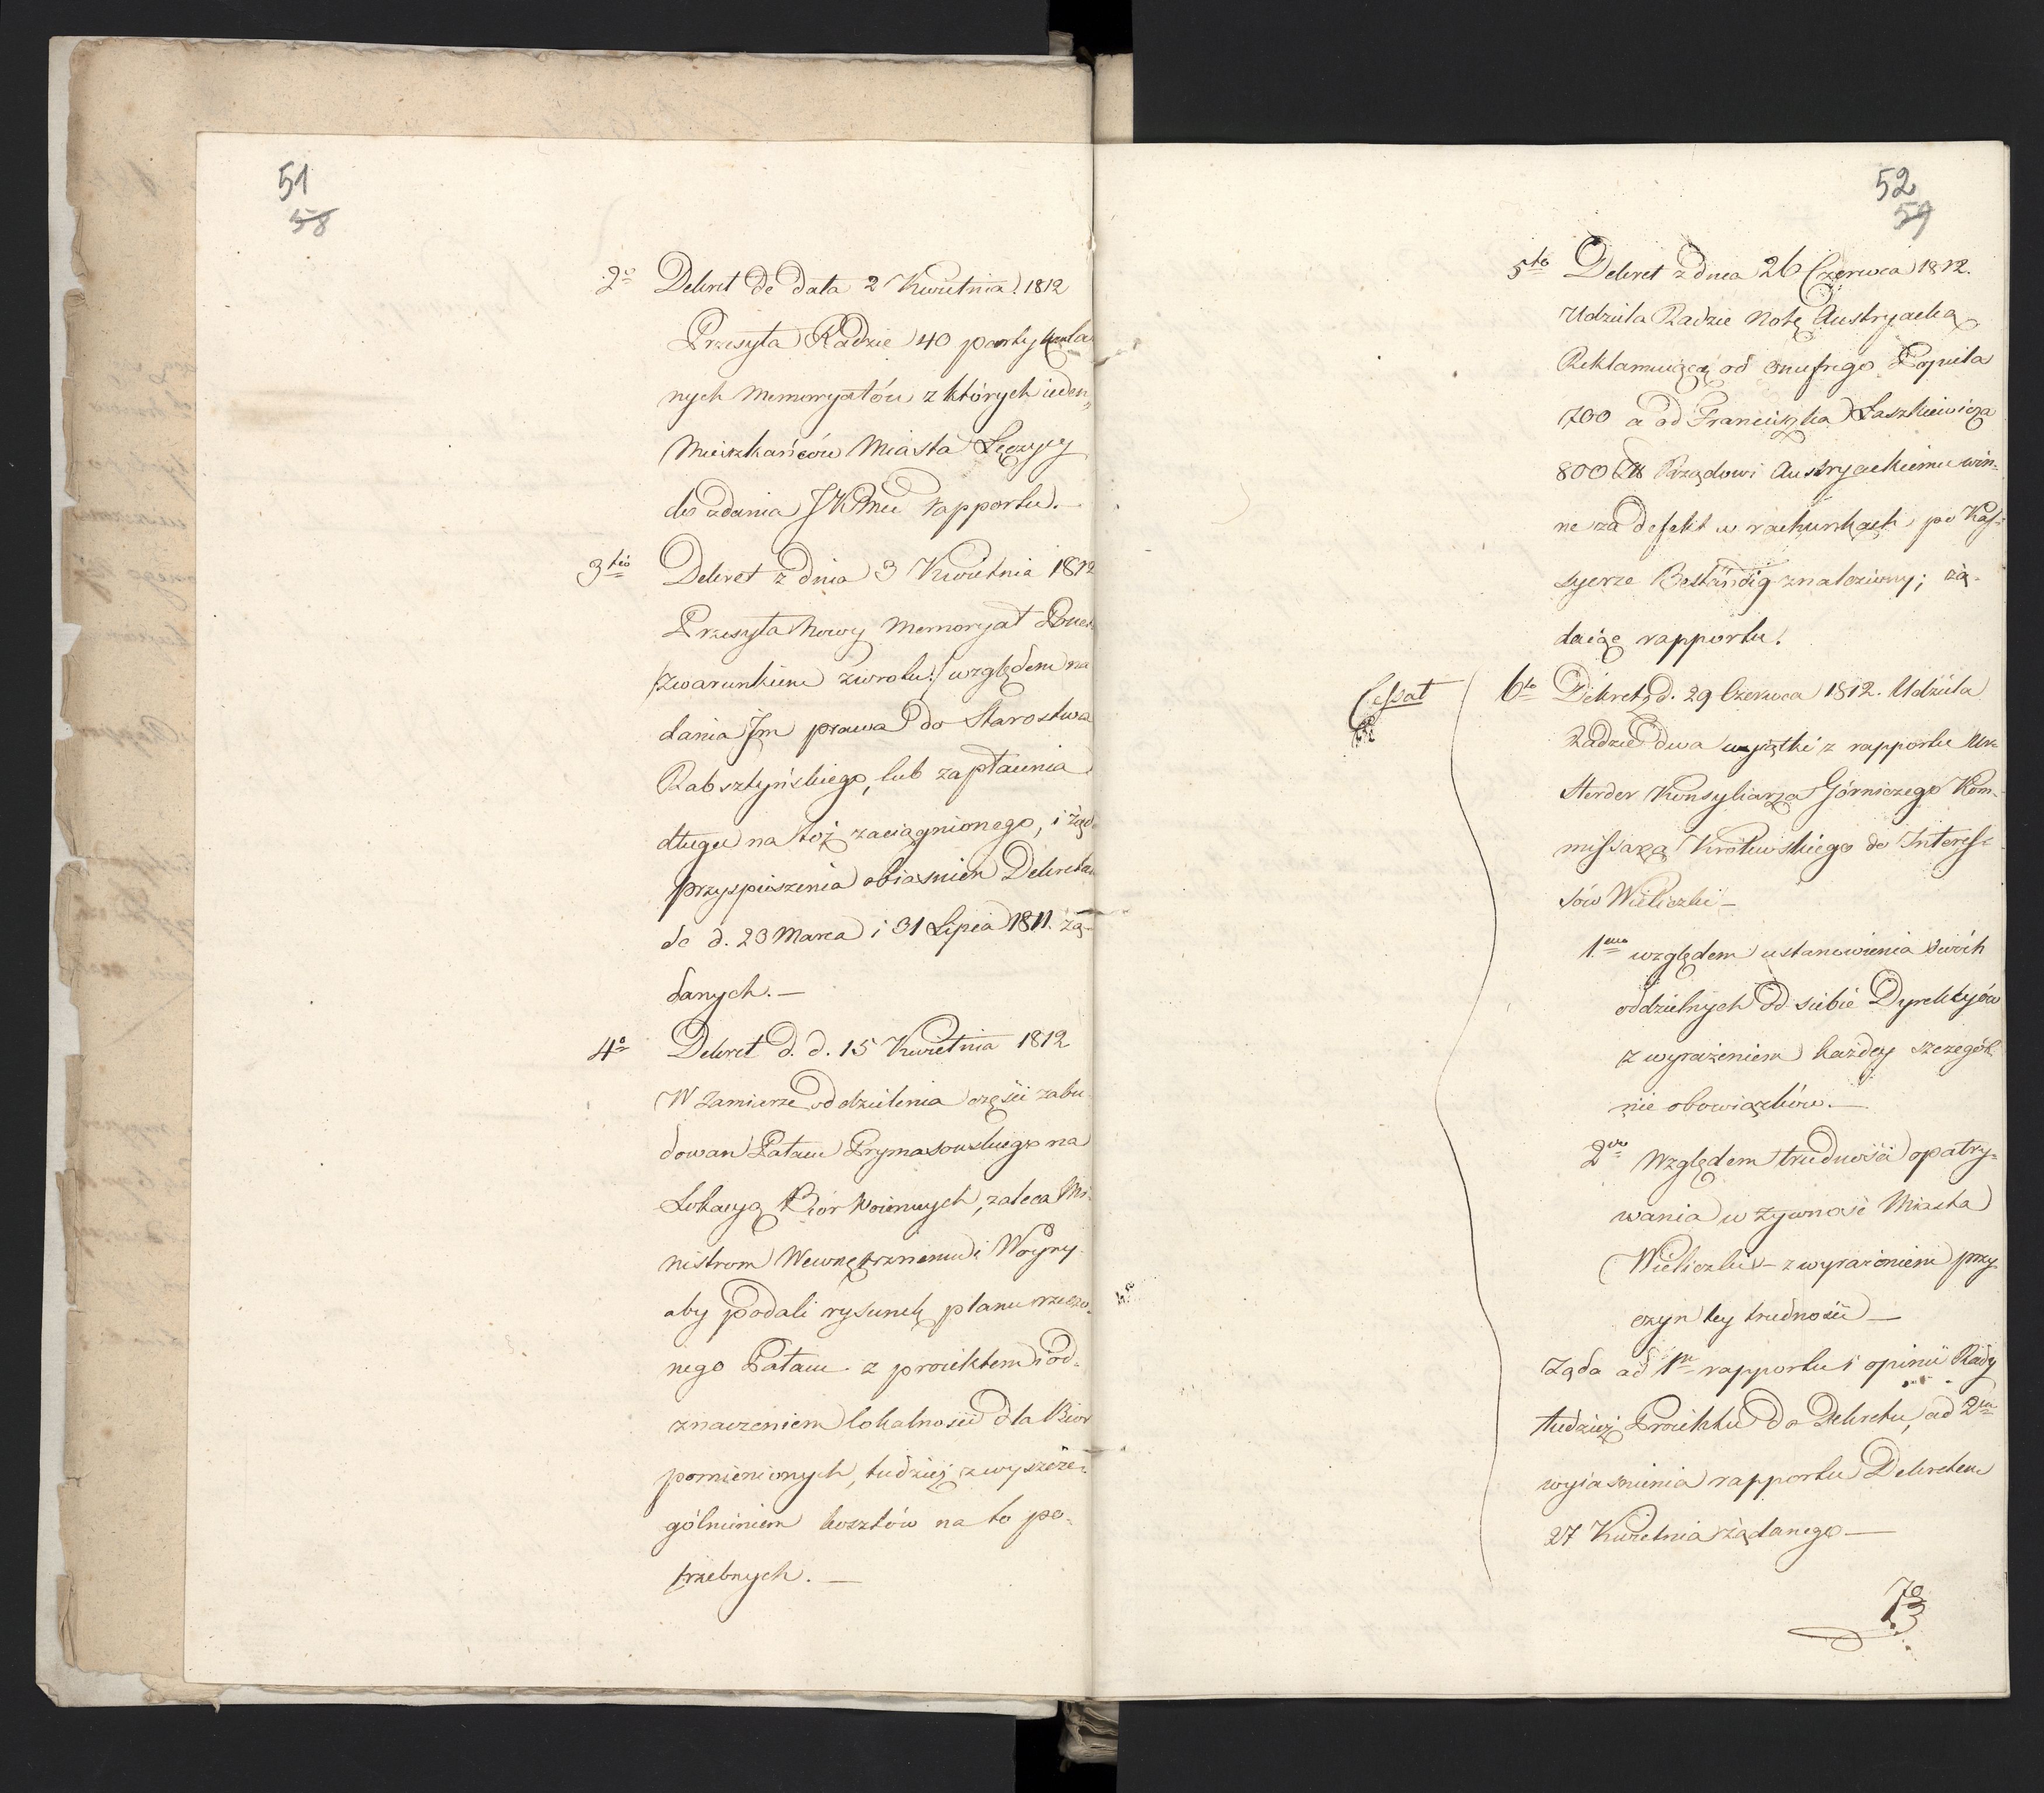 51
58
2o Dekret de data 2 Kwietnia 1812
Przesyła Radzie 40 partykular
nych memoryałów z których ieden
Mieszkańców Miasta Łęczycy
do zdania JKMci rapportu.—
3tio Dekret z dnia 3 Kwietnia 1812
Przesyła Nowy memoryał
/z warunkiem zwrotu:/ względem na
dania Im prawa do Starostwa
Rabsztyńskiego, lub zapłacenia
długu na toż zaciągnionego, i żąd
przyspieszenia obiasnien Dekretam
de d. 23 Marca i 31 Lipca 1811. żą-
danych.—
4o Dekret d. d. 15 Kwietnia 1812
W Zamiarze oddzielenia części zabu
dowan Pałacu Prymasowskiego na
Lokacyą Biór Woiennych, zaleca Mi-
nistrom Wewnętrznemu i Woyny
aby podali rysunek planu rzeczo-
nego Pałacu z proiektem i od-
znaczeniem lokalności dla Biór
pomienionych, tudzież z wyszcze-
gólnieniem kosztów na to po-
trzebnych.—
52
59
5to Dekret z dnia 26 Czerwca 1812.
Udziela Radzie Notę Austryacką
Reklamuiącą od Onufrego Popiela
700 a od Franciszka Łaszkiewicza
800 Rządowi Austryackiemu win-
ne za defekt w rachunkach po Kas-
syerze Beständig znaleziony; żą-
daiąc rapportu.
Cessat
6to Dekret d. 29 Czerwca 1812. Udziela
Radzie dwa wyiątki z rapportu Ur.
Herder Konsyliarza Górniczego Kom-
missarza Królewskiego do Interes-
sów Wieliczki—
1mo względem ustanowienia dwóch
oddzielnych od siebie Dyrekcyów
z wyrażeniem każdey szczegól-
nie obowiązków.—
2do Względem trudności opatry-
wania w żywność Miasta
Wieliczki — z wyrażeniem przy
czyn tey trudności—
Żąda ad 1m rapportu i opinii Rady
tudzież Proiektu do Dekretu, ad 2m
wyiasnienia rapportu Dekretem
27 Kwietnia żądanego—